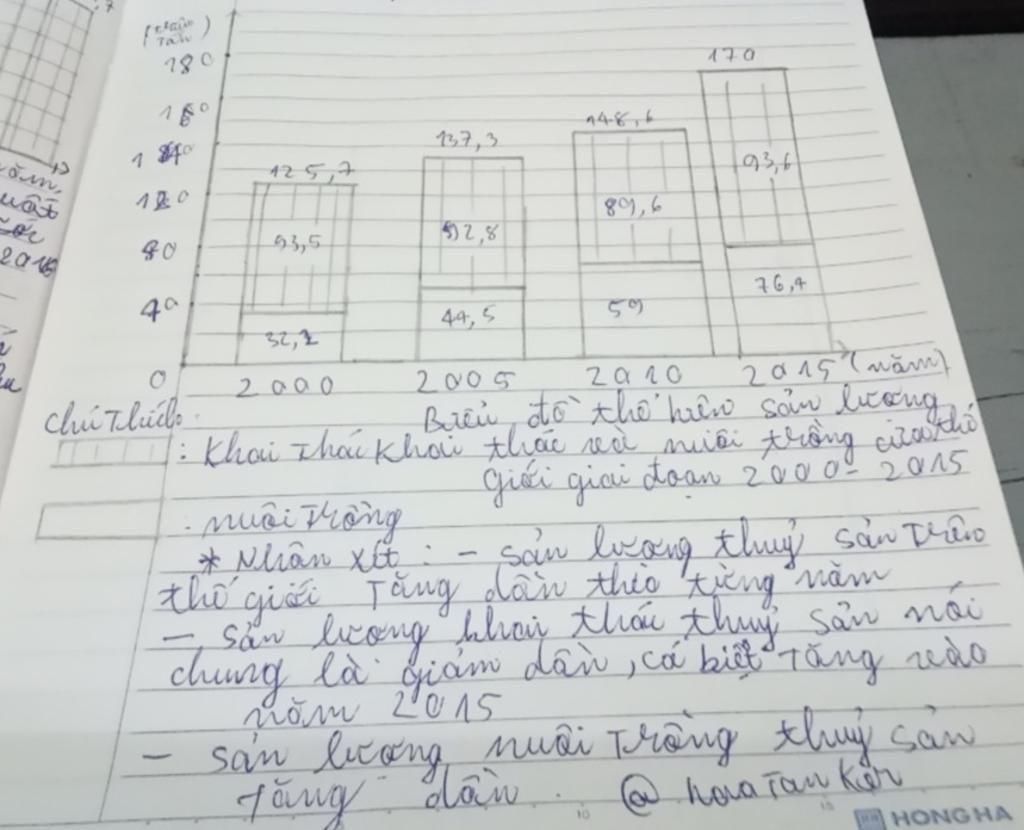 (triệu
Tấn)
180
160
140
120
80
40
0
125,7
137,3
148,6
170
93,5
92,8
89,6
93,6
32,2
44,5
59
76,4
2000 2005 2010 2015 (năm)
Chú thích:
Biểu đồ thể hiện sản lượng
: Khai thác khai thác và nuôi trồng của thế
giới giai đoạn 2000-2015
: nuôi trồng
* Nhận xét : - sản lượng thuỷ sản trên
thế giới Tăng dần theo từng năm
- sản lượng khai thác thuỷ sản nói
chung là giảm dần, cá biệt tăng vào
năm 2015
- sản lượng nuôi trồng thuỷ sản
tăng dần.
@ hoa Tan
HONG HA
năm,
2015